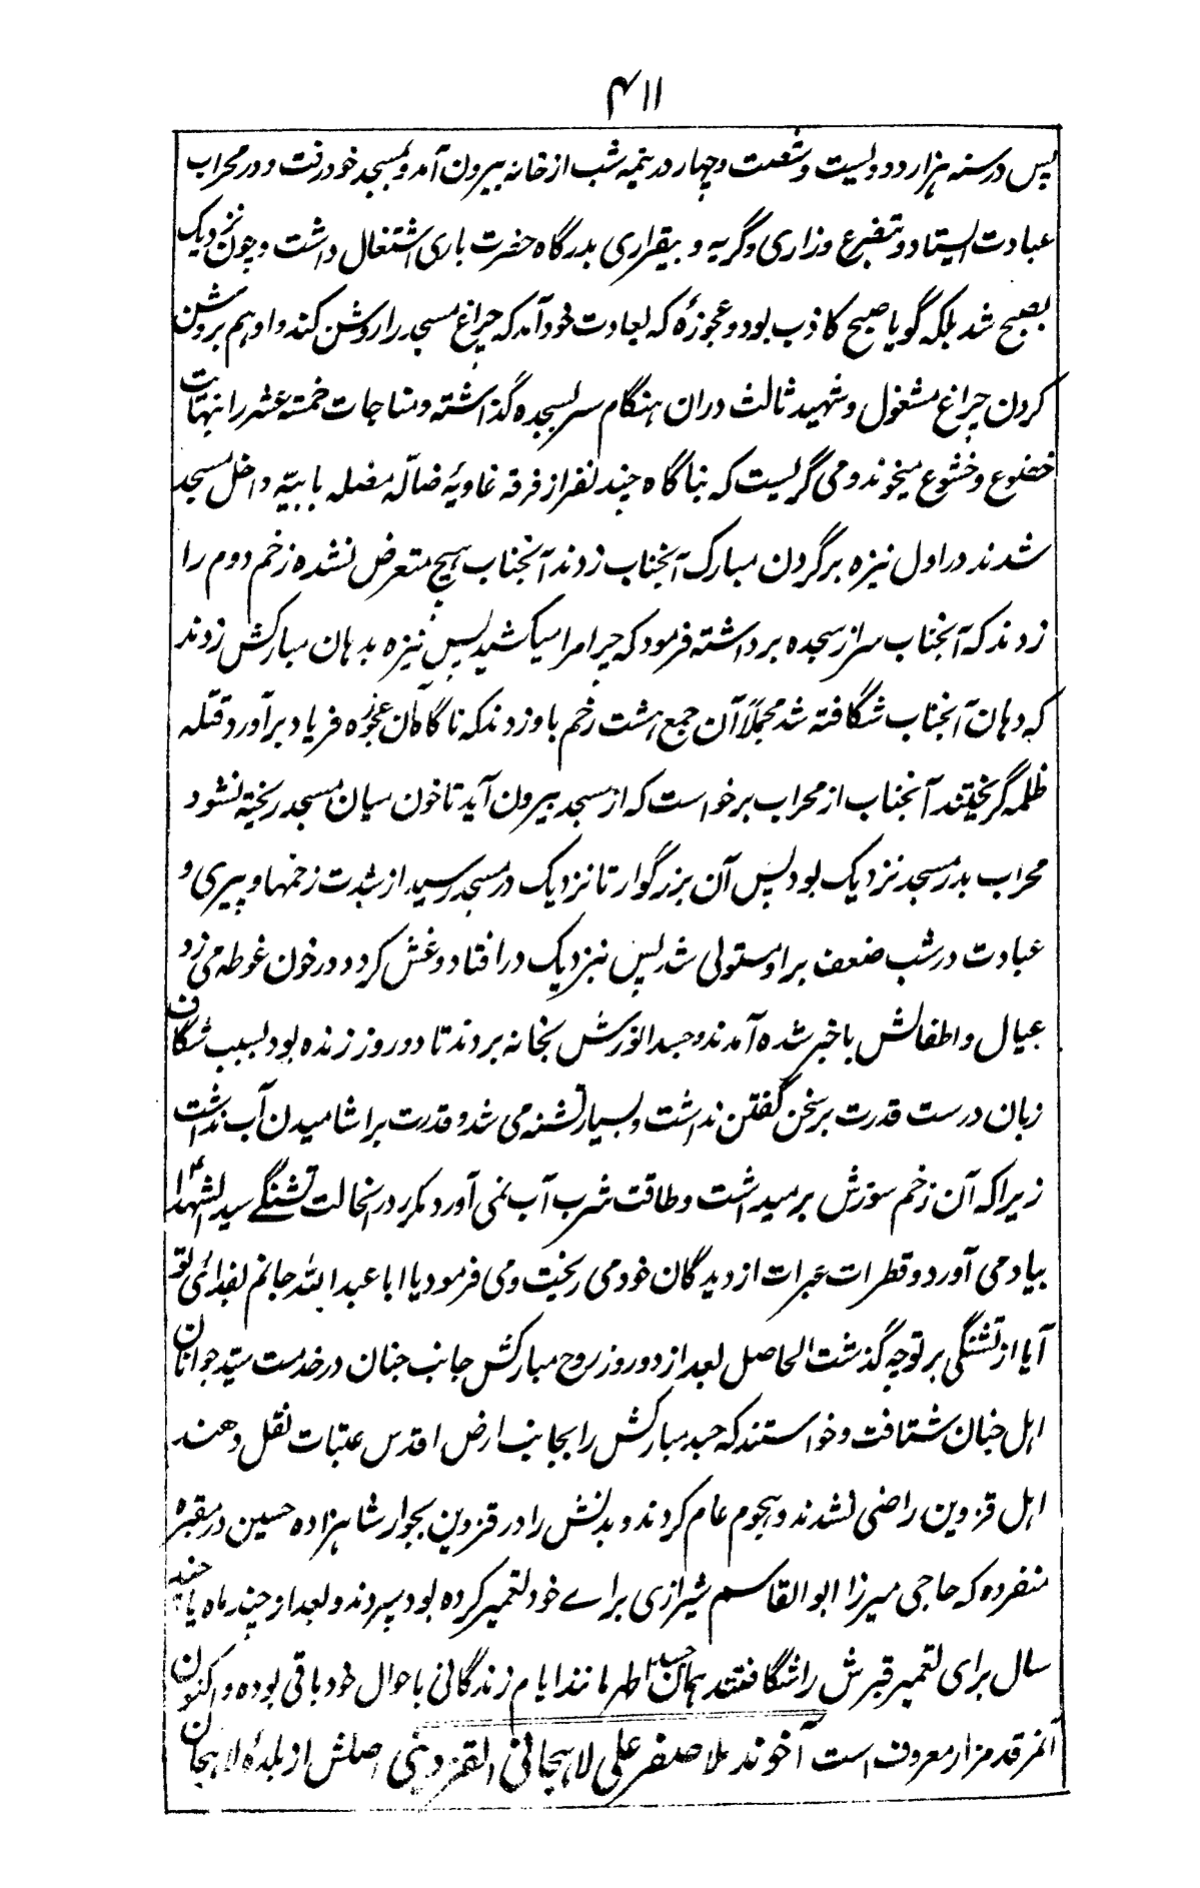 ۴۱۱
پس در سنه هزار و دویست و شصت و چهار در نیمه شب از خانه بیرون آمد و بمسجد خود رفت و در محراب
عبادت ایستاد و بتضرع و زاری و گریه و بیقراری بدرگاه حضرت باری اشتغال داشت و چون نزدیک
بصبح شد بلکه گویا صبح کاذب بود و عجوزهٔ که بعادت خود آمد که چراغ مسجد را روشن کند و او هم بروشن
کردن چراغ مشغول و شهید ثالث دران هنگام سر بسجده گذاشته و مناجات خمسة عشر را بنهایت
خضوع و خشوع میخوند و می گریست که بناگاه چند نفر از فرقه غاویهٔ ضالّه مضله بابیّه داخل مسجد
شدند در اول نیزه بر گردن مبارک آنجناب زدند آنجناب هیچ متعرض نشده زخم دوم را
زدند که آنجناب سر از سجده برداشته فرمود که چرا مرا میکشید پس نیزه بدهان مبارکش زدند
که دهان آنجناب شگافته شد مجملاً آن جمع هشت زخم باو زدند که ناگاه آن عجوزه فریاد برآورد قتله
ظلمه گریختند آنجناب از محراب برخواست که از مسجد بیرون آید تا خون میان مسجد ریخته نشود
محراب بدر مسجد نزدیک بود پس آن بزرگوار تا نزدیک در مسجد رسید از شدت زخمها و پیری و
عبادت در شب ضعف بر او مستولی شد پس نزدیک در افتاد و غش کرد و در خون غوطه می زد
عیال و اطفالش با خبر شده آمدند و جسد انورش بخانه بردند تا دو روز زنده بود بسبب شگافتن
زبان درست قدرت بر سخن گفتن نداشت و بسیار تشنه می شد و قدرت بر اشامیدن آب نداشت
زیرا که آن زخم سوزش بر میداشت و طاقت شرب آب نمی آورد مکرر در انحالت تشنگے سید الشهدا ؑ
بیاد می آورد و قطرات عبرات از دیدگان خود می ریخت و می فرمود یا ابا عبد الله جانم بفدای تو
آیا از تشنگی بر تو چه گذشت الحاصل بعد از دو روز روح مبارکش جانب جنان در خدمت سیّد جوانان
اهل جنان شتافت و خواستند که جسد مبارکش را بجانب ارض اقدس عتبات نقل دهند
اهل قزوین راضی نشدند و هجوم عام کردند و بدنش را در قزوین بجوار شاهزاده حسین در مقبرهٔ
منفرده که حاجی میرزا ابو القاسم شیرازی براے خود تعمیر کرده بود سپردند و بعد از چند ماه یا چند
سال برای تعمیر قبرش را شگافتند همان جسد اطهر مانند ایام زندگانی باحوال خود باقی بوده و اکنون
آنمرقد مزار معروف است آخوند ملا صفر علی لاهیجانی القزوینی اصلش از بلدهٔ لاهیجان